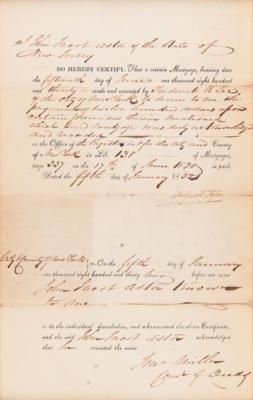 I John Jacob Astor of the State of
New Jersey
DO HEREBY CERTIFY, That a certain Mortgage, bearing date
the fifteenth day of June one thousand eight hundred
and thirty made and executed by Frederick R. Lee
of the City of New York to secure to me the
payment of thousand dollars upon
certain premises therein mentioned
which said mortgage was duly acknowledged
and recorded
in the Office of the Register in & for the city and County
of New York in Lib. 138 of Mortgages,
page 337 on the 17th of June 1830 is paid.
Dated the fifth day of January 1832
City & County of New York ss. On the fifth day of January
one thousand eight hundred and thirty two before me came
John Jacob Astor known
to me
to be the individual described in, and who executed the above Certificate,
and the said John Jacob Astor acknowledged
that he executed the same.
Mills
Comr of Deeds